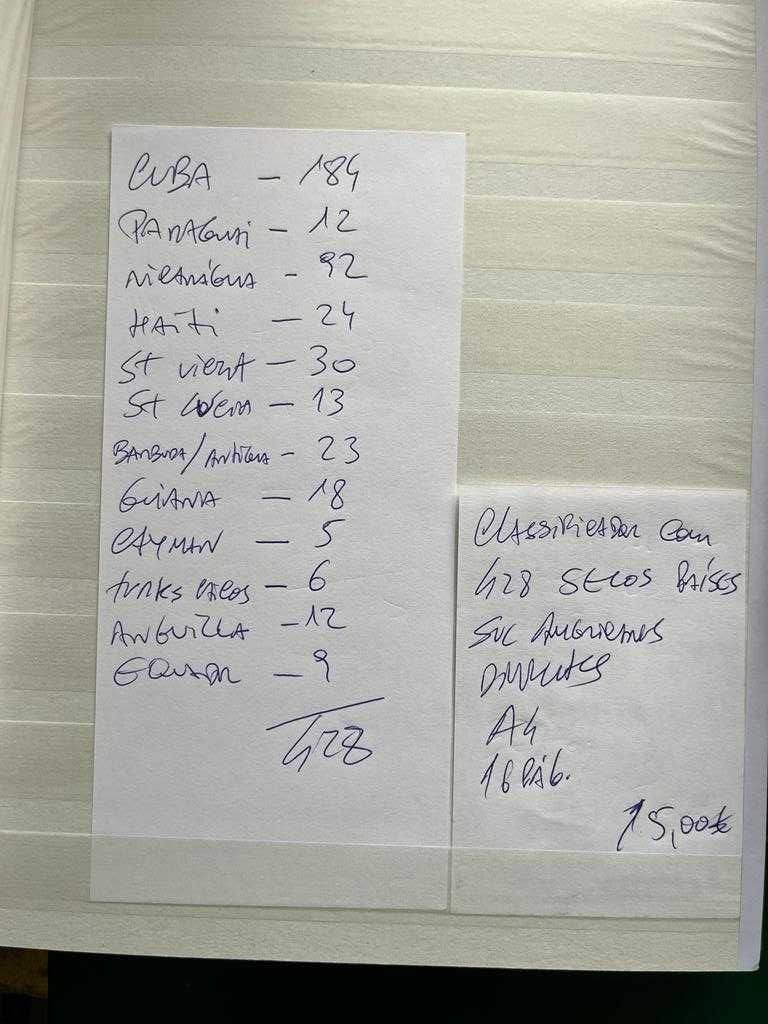 CUBA — 184
PARAGUAI — 12
NICARÁGUA - 92
HAITI — 24
St VICENT — 30
St LÚCIA — 13
BARBUDA/ANTIGUA - 23
GUIANA — 18
CAYMAN — 5
TURKS CAICOS — 6
ANGUILLA — 12
EQUADOR — 9
428
CLASSIFICADOR COM
428 SELOS PAÍSES
SUL AMERICANOS
DIFERENTES
A4
16 PÁG.
15,00€